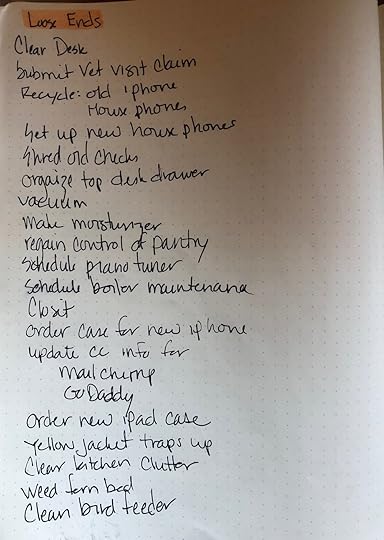 Loose Ends
Clear Desk
Submit Vet visit claim
Recycle: old iphone
House phones
Set up new house phones
Shred old checks
orgaize top desk drawer
vacuum
Make moisturizer
regain control of pantry
Schedule piano tuner
Schedule boiler maintenance
Closit
order case for new iphone
update cc info for
Mailchimp
GoDaddy
Order new ipad case
Yellow jacket traps up
Clear kitchen clutter
weed fern bed
Clean bird feeder